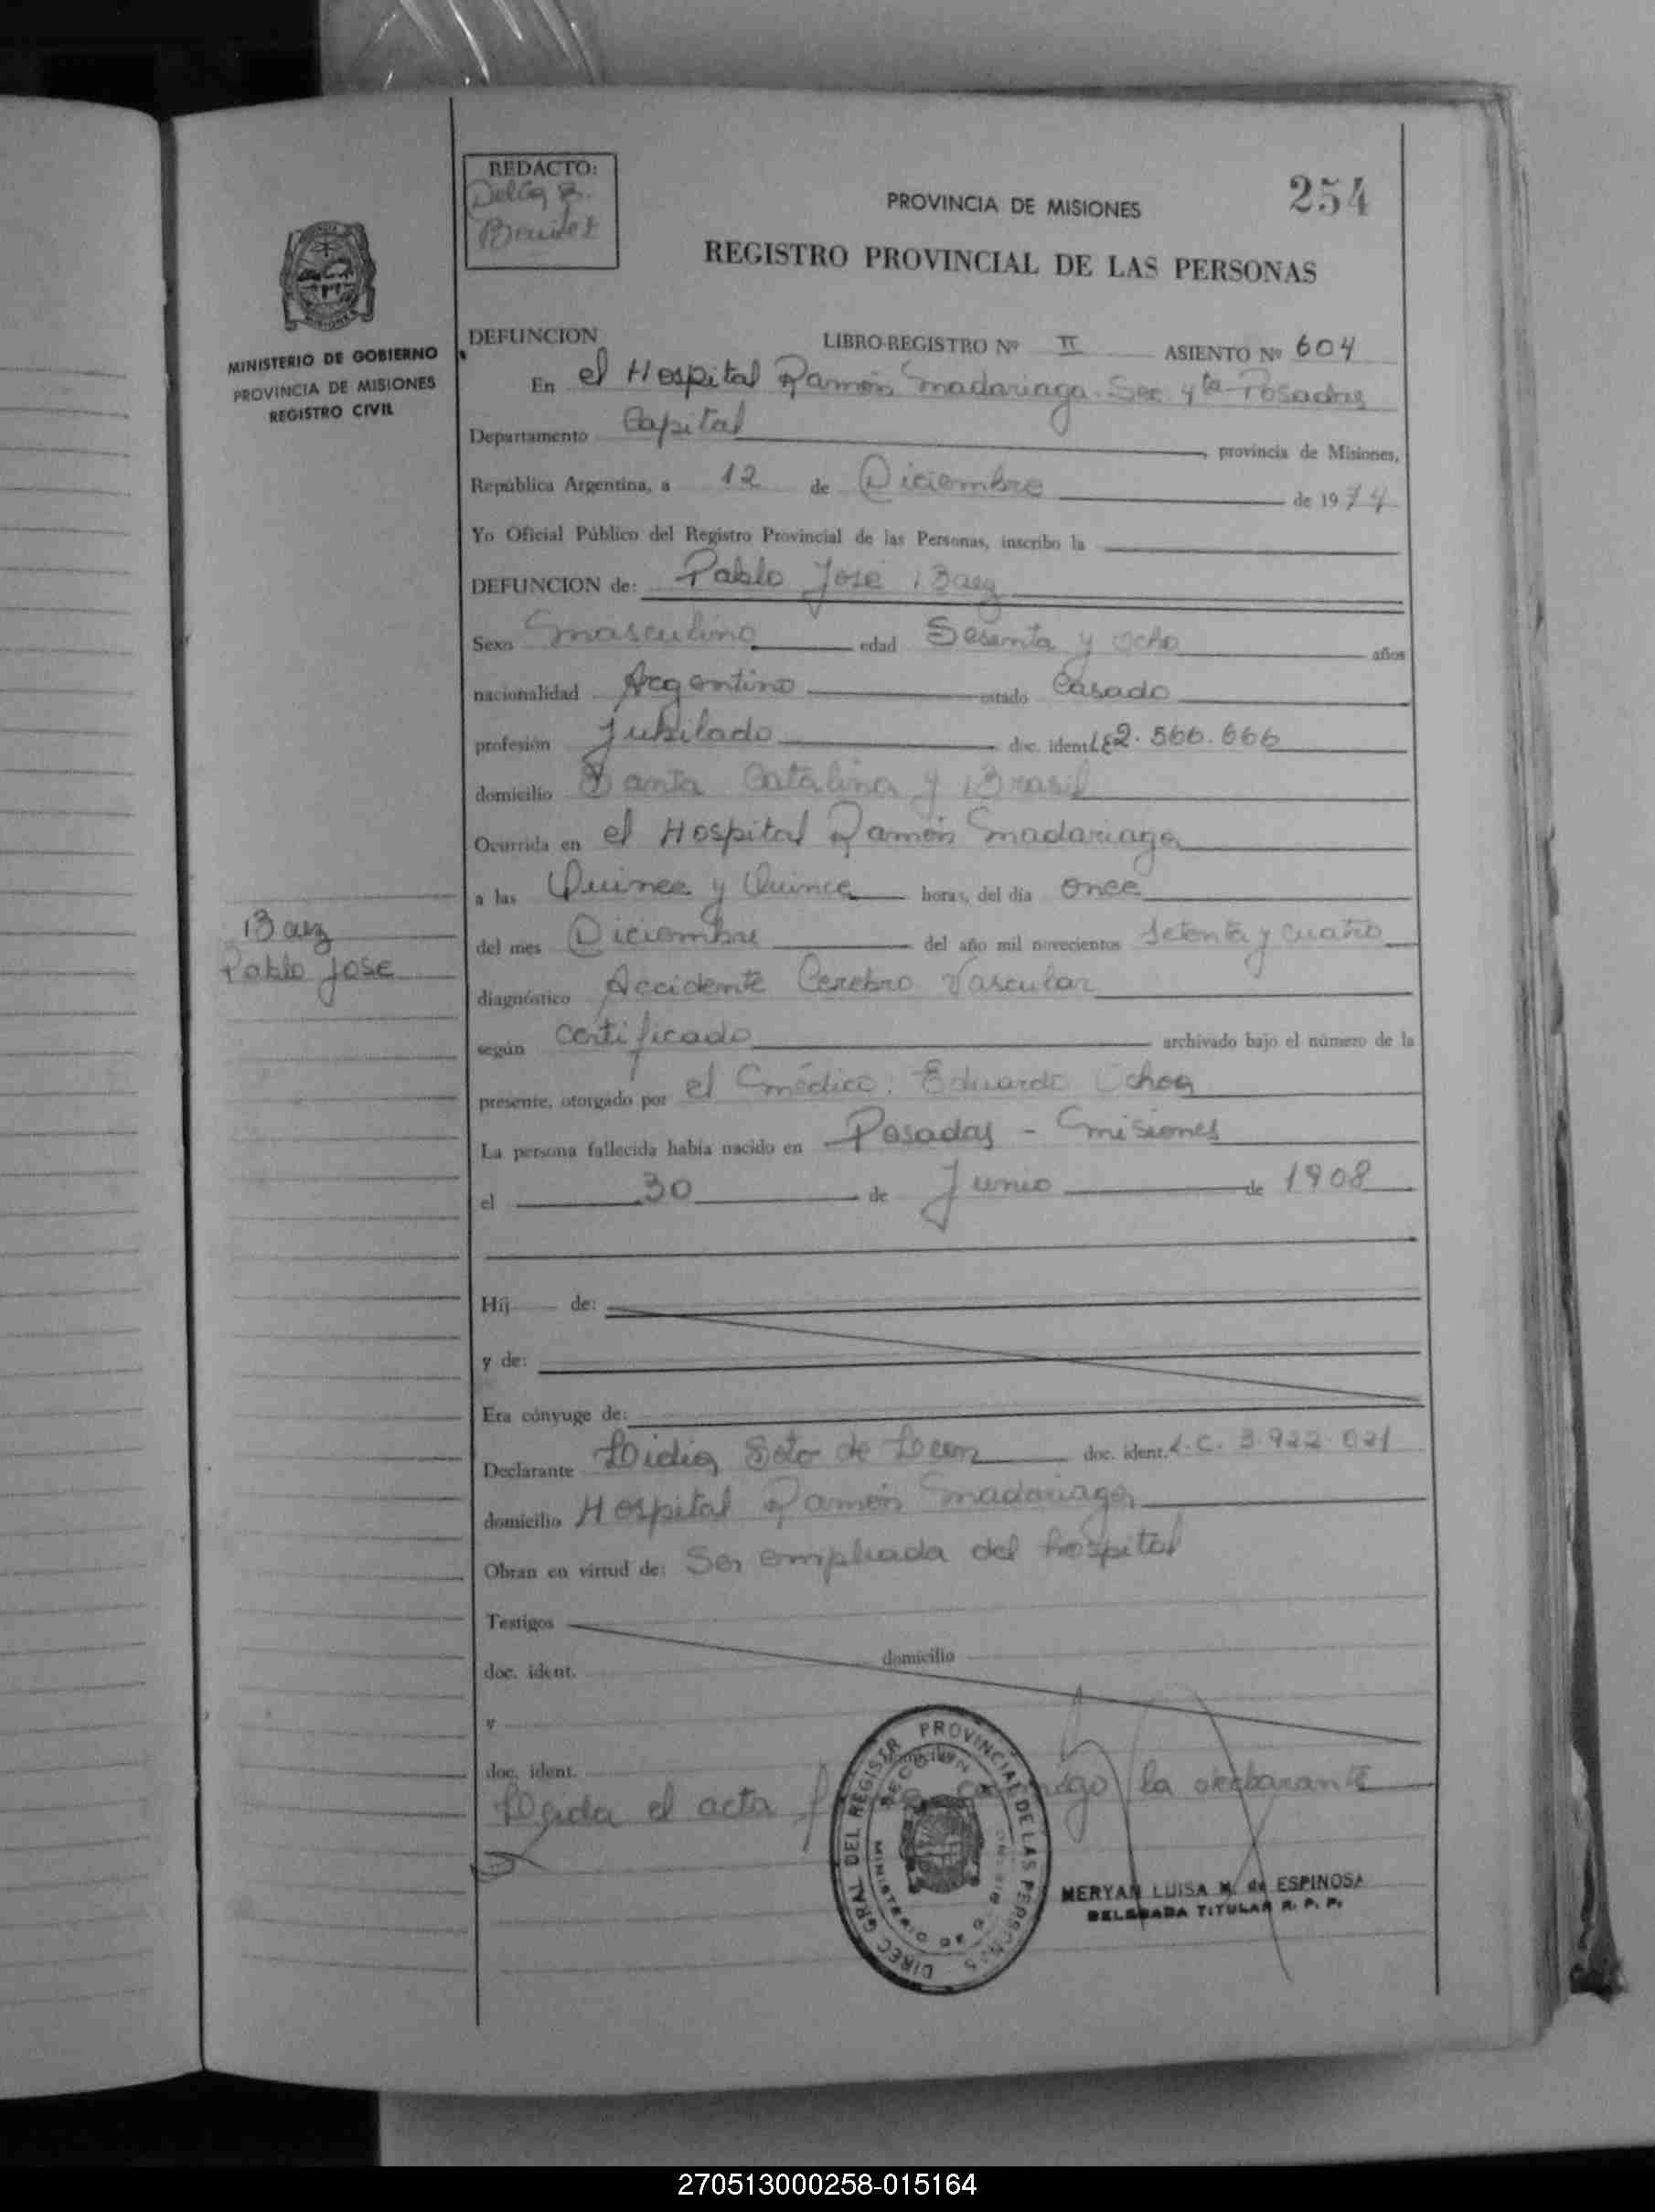 REDACTO:
Delia B.
Benitez
PROVINCIA DE MISIONES
254
REGISTRO PROVINCIAL DE LAS PERSONAS
MINISTERIO DE GOBIERNO
PROVINCIA DE MISIONES
REGISTRO CIVIL
DEFUNCION LIBRO-REGISTRO Nº II ASIENTO Nº 604
En el Hospital Ramón Madariaga - Sec 4ta Posadas
Departamento Capital, provincia de Misiones,
República Argentina, a 12 de Diciembre de 1974
Yo Oficial Público del Registro Provincial de las Personas, inscribo la
DEFUNCION de: Pablo José Baez
Sexo masculino edad Sesenta y ocho años
nacionalidad Argentino estado Casado
profesión Jubilado doc. ident. LE 2.566.666
domicilio Santa Catalina y Brasil
Ocurrida en el Hospital Ramón Madariaga
a las Quince y Quince horas, del día once
del mes Diciembre del año mil novecientos Setenta y cuatro
Baez
Pablo José
diagnóstico Accidente Cerebro Vascular
según certificado archivado bajo el número de la
presente, otorgado por el médico: Eduardo Ochoa
La persona fallecida había nacido en Posadas - Misiones
el 30 de Junio de 1908
Hij de:
y de:
Era cónyuge de:
Declarante Lidia Soto de doc. ident. L.C. 3.922.021
domicilio Hospital Ramón Madariaga
Obran en virtud de: Ser empleada del hospital
Testigos
doc. ident. domicilio
y
doc. ident.
Leida el acta conmigo la declarante
DIREC GRAL DEL REGISTR PROVINCIAL DE LAS PERSONAS
MINISTERIO DE
MERYAN LUISA M. de ESPINOSA
DELEGADA TITULAR R. P. P.
270513000258-015164